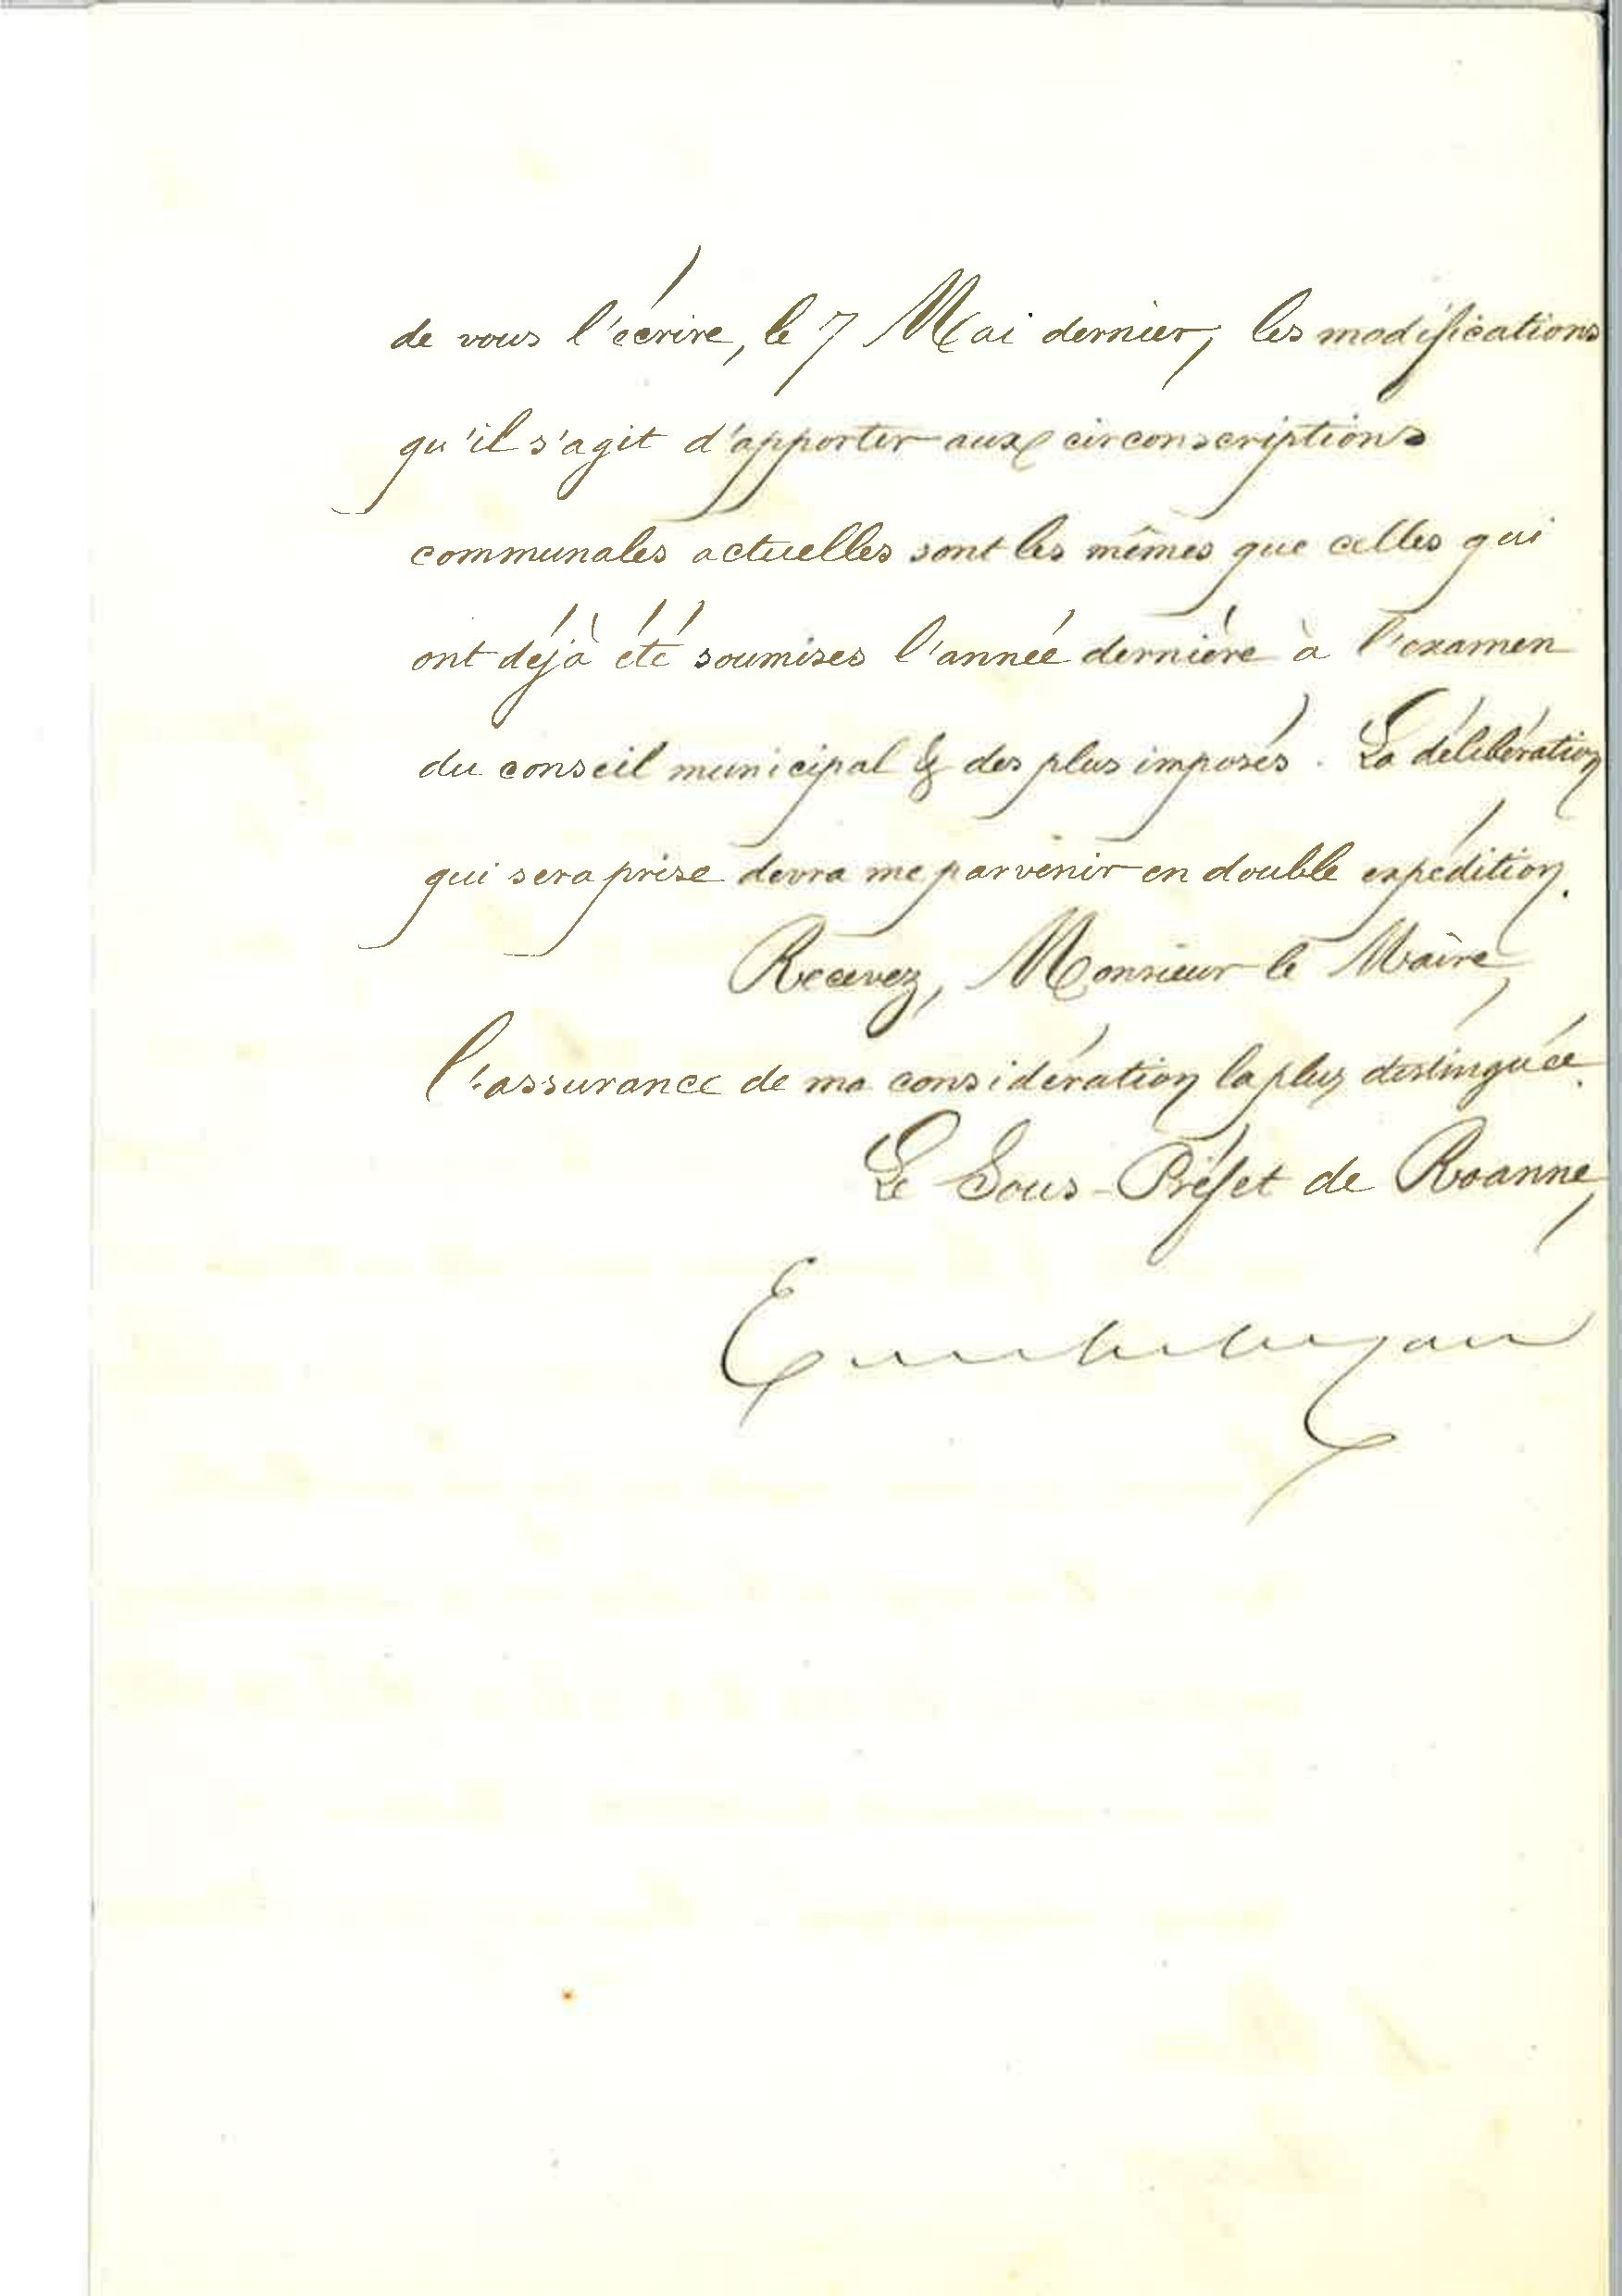 de vous l'écrire, le 7 Mai dernier, les modifications
qu'il s'agit d'apporter aux circonscriptions
communales actuelles sont les mêmes que celles qui
ont déjà été soumises l'année dernière à l'examen
du conseil municipal & des plus imposés. La délibération
qui sera prise devra me parvenir en double expédition.
Recevez, Monsieur le Maire,
l'assurance de ma considération la plus distinguée.
Le Sous-Préfet de Roanne,